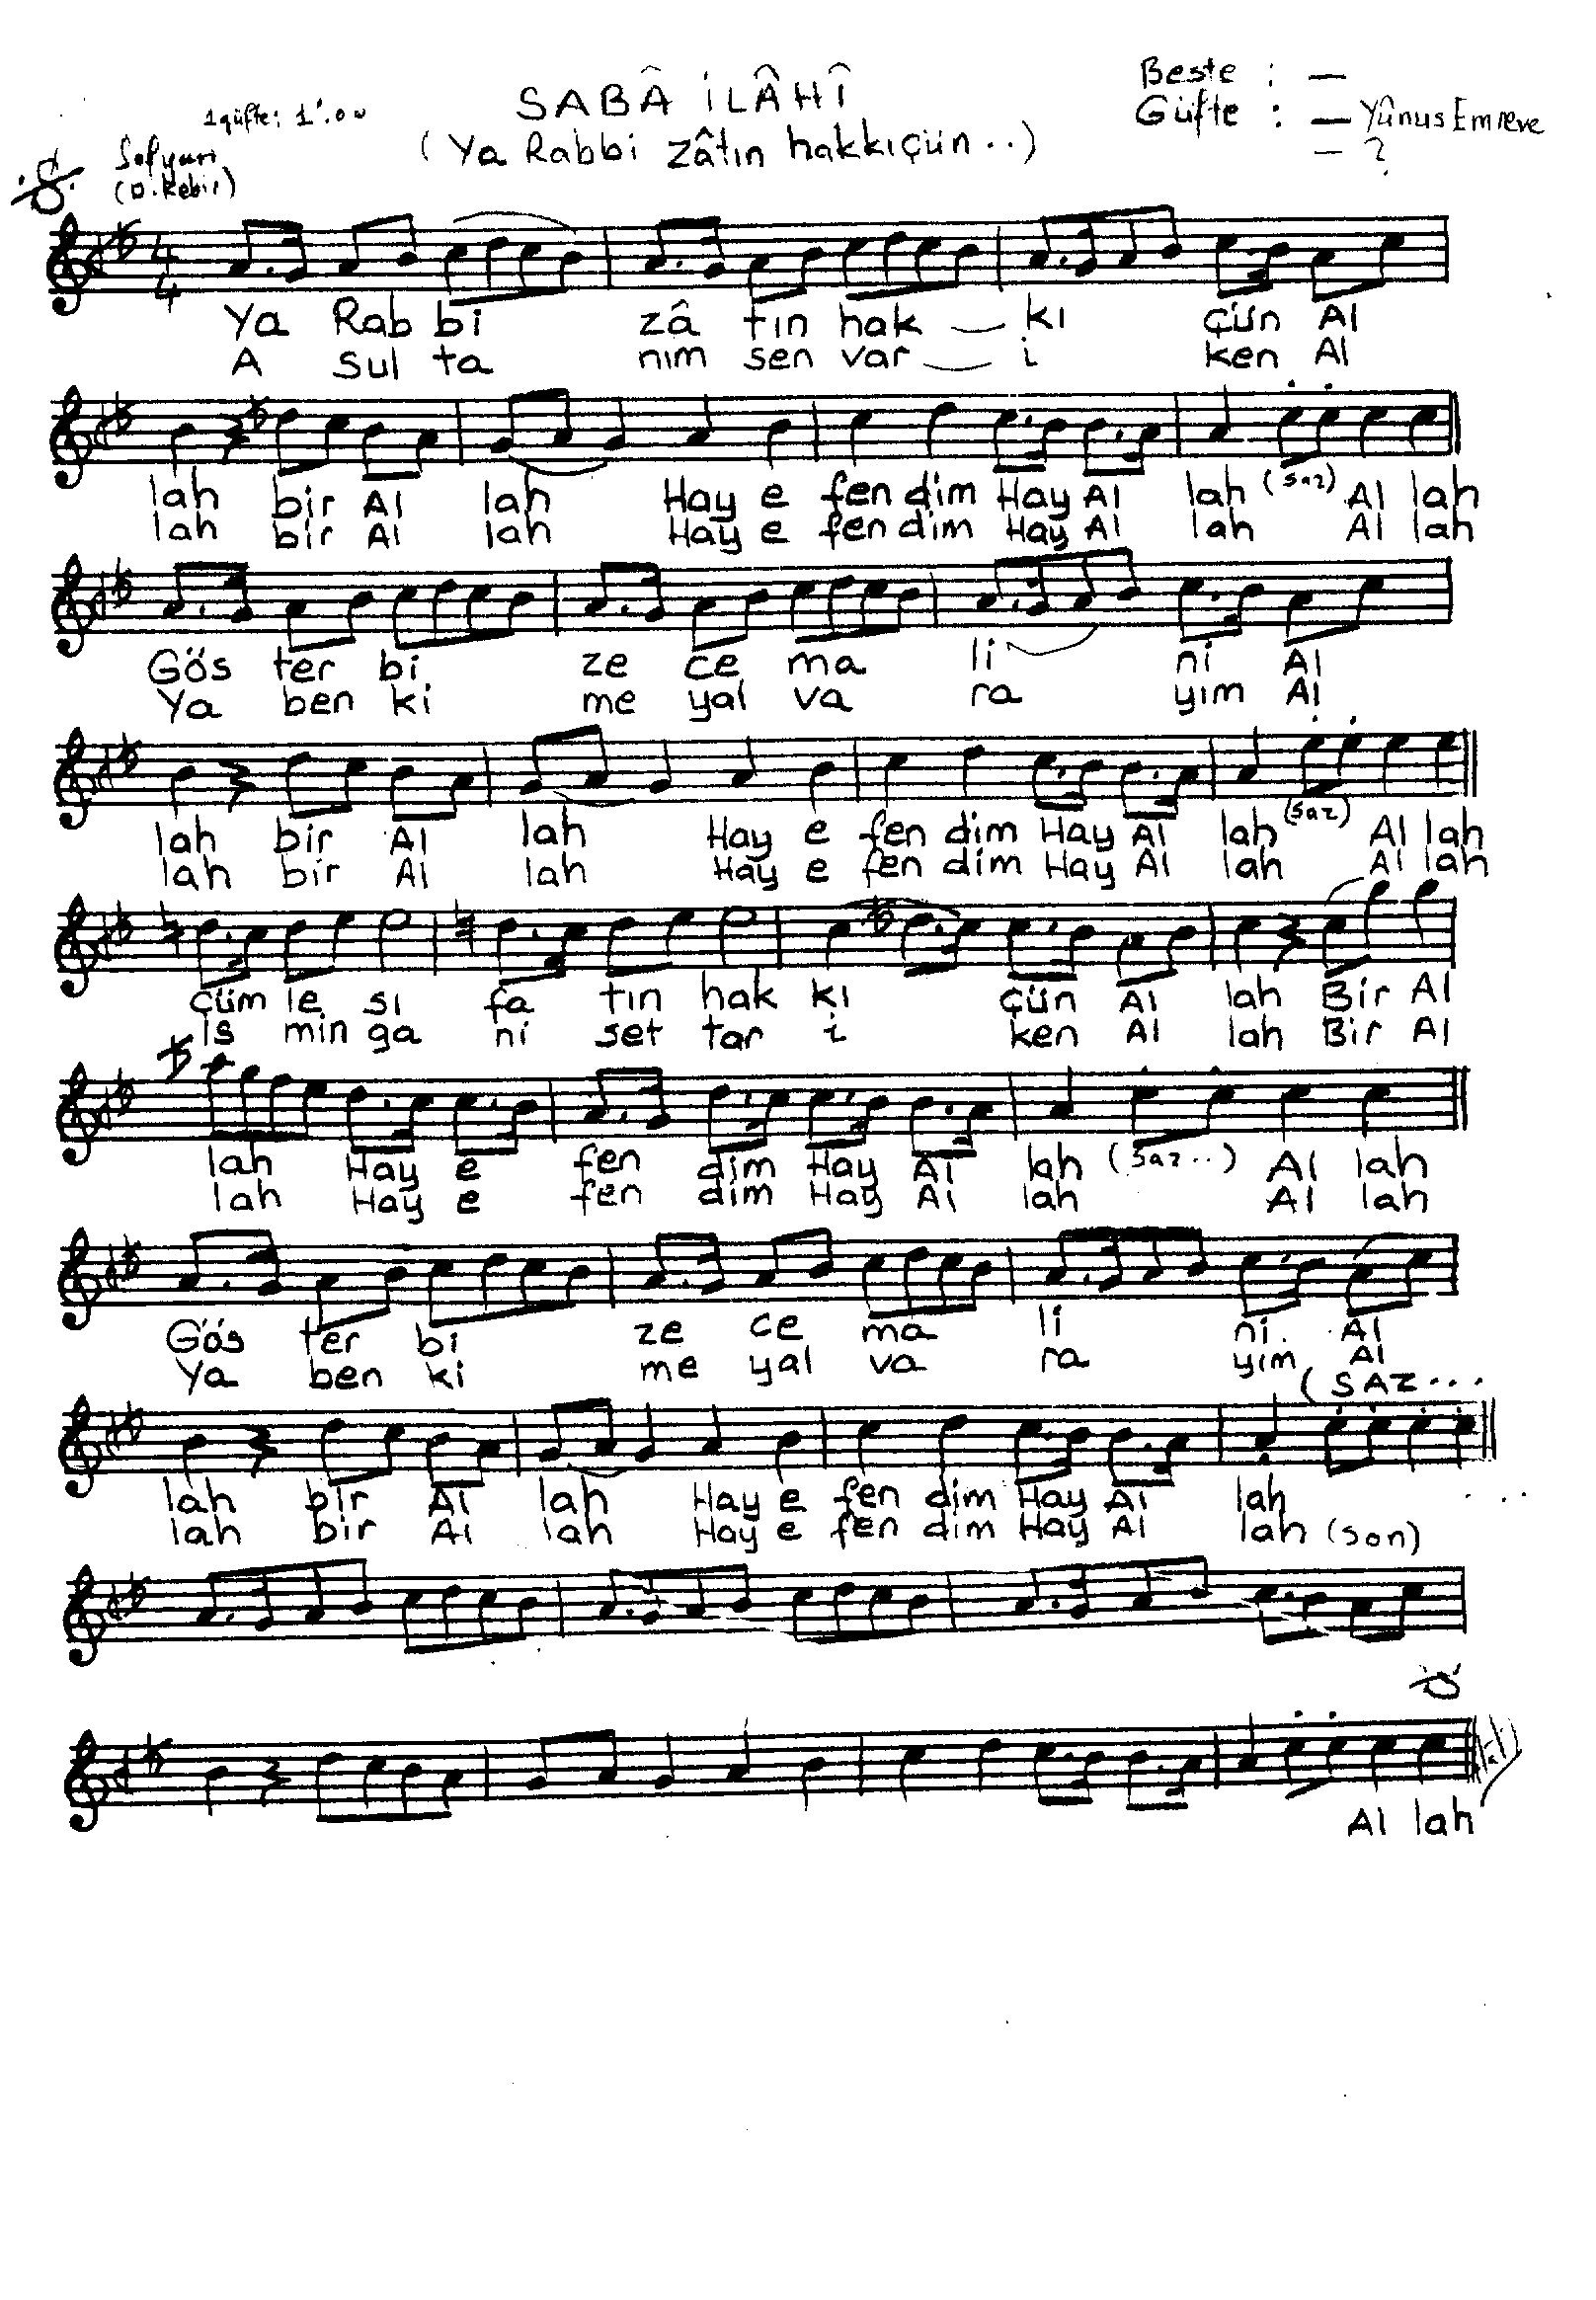 SABÂ İLÂHÎ
(Ya Rabbi zâtın hakkıçün..)
Beste : —
Güfte : — Yûnus Emre ve
— ?
1 güfte: 1'.00
Sofyan
(D. Kebir)
4/4
Ya Rab bi zâ tın hak kı çün Al
A Sul ta nım sen var i ken Al
lah bir Al lah Hay e fen dim Hay Al lah (saz) Al lah
lah bir Al lah Hay e fen dim Hay Al lah Al lah
Gös ter bi ze ce ma li ni Al
Ya ben ki me yal va ra yım Al
lah bir Al lah Hay e fen dim Hay Al lah (saz) Al lah
lah bir Al lah Hay e fen dim Hay Al lah Al lah
Cüm le sı fa tın hak kı çün Al lah Bir Al
İs min ga ni set tar i ken Al lah Bir Al
lah Hay e fen dim Hay Al lah (saz..) Al lah
lah Hay e fen dim Hay Al lah Al lah
Gös ter bi ze ce ma li ni. Al
Ya ben ki me yal va ra yım Al
(SAZ...
lah bir Al lah Hay e fen dim Hay Al lah ...
lah bir Al lah Hay e fen dim Hay Al lah (son)
Al lah